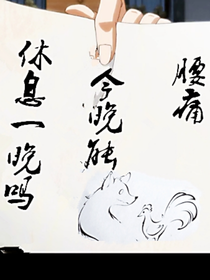 腰痛
今晚能
休息一晚吗